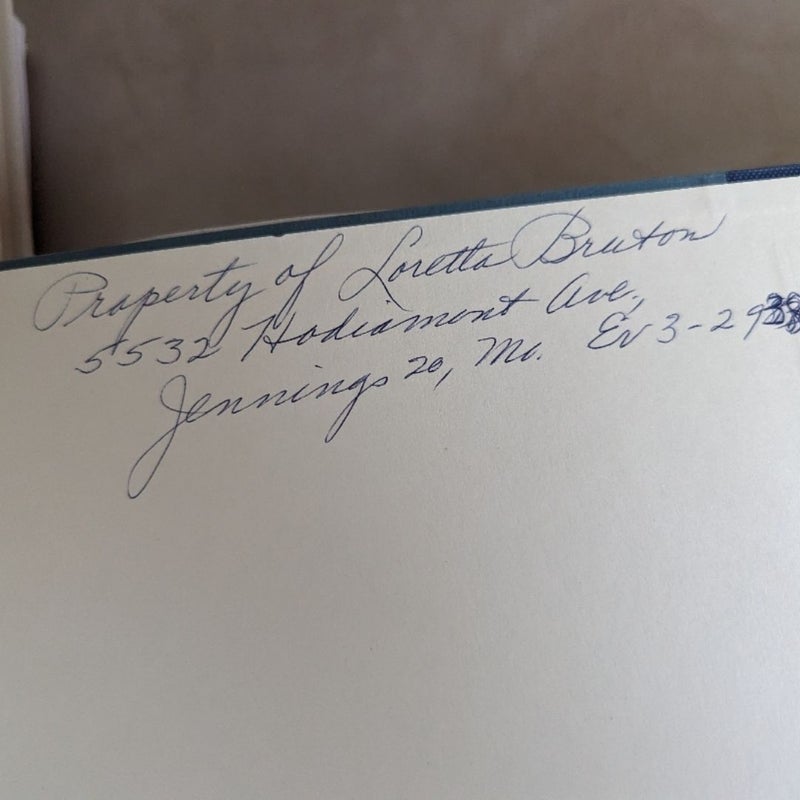 Property of Loretta Bruton
5532 Hodiamont Ave,
Jennings 20, Mo. Ev 3-29